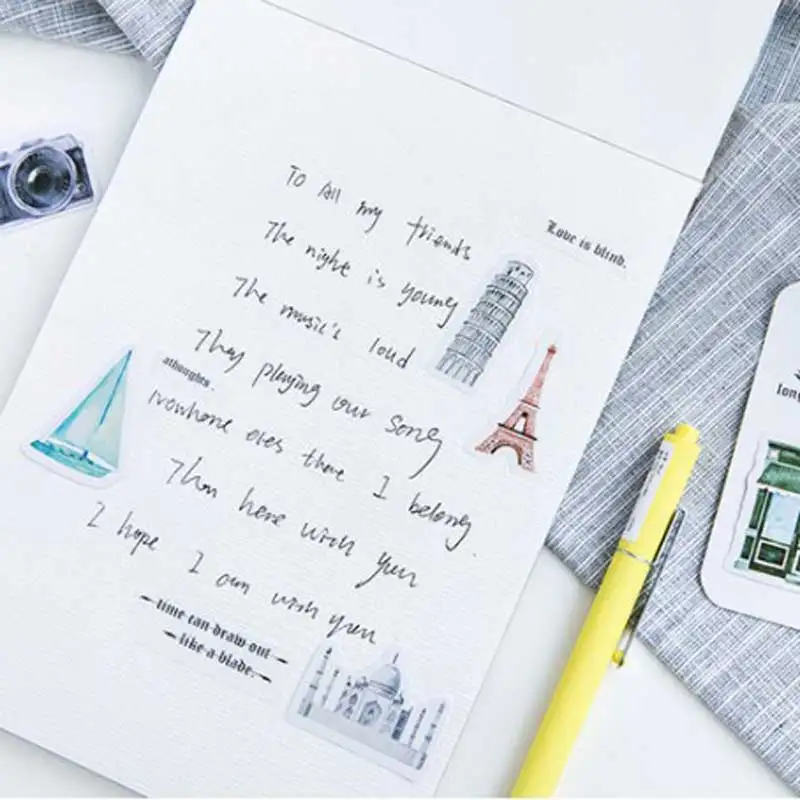 To All my friends
Love is blind.
The night is young
The music's loud
They playing our song
athoughts.
Nowhere oles there I belong.
Than here with you
I hope I am with you
time can draw out
like a blade.
long